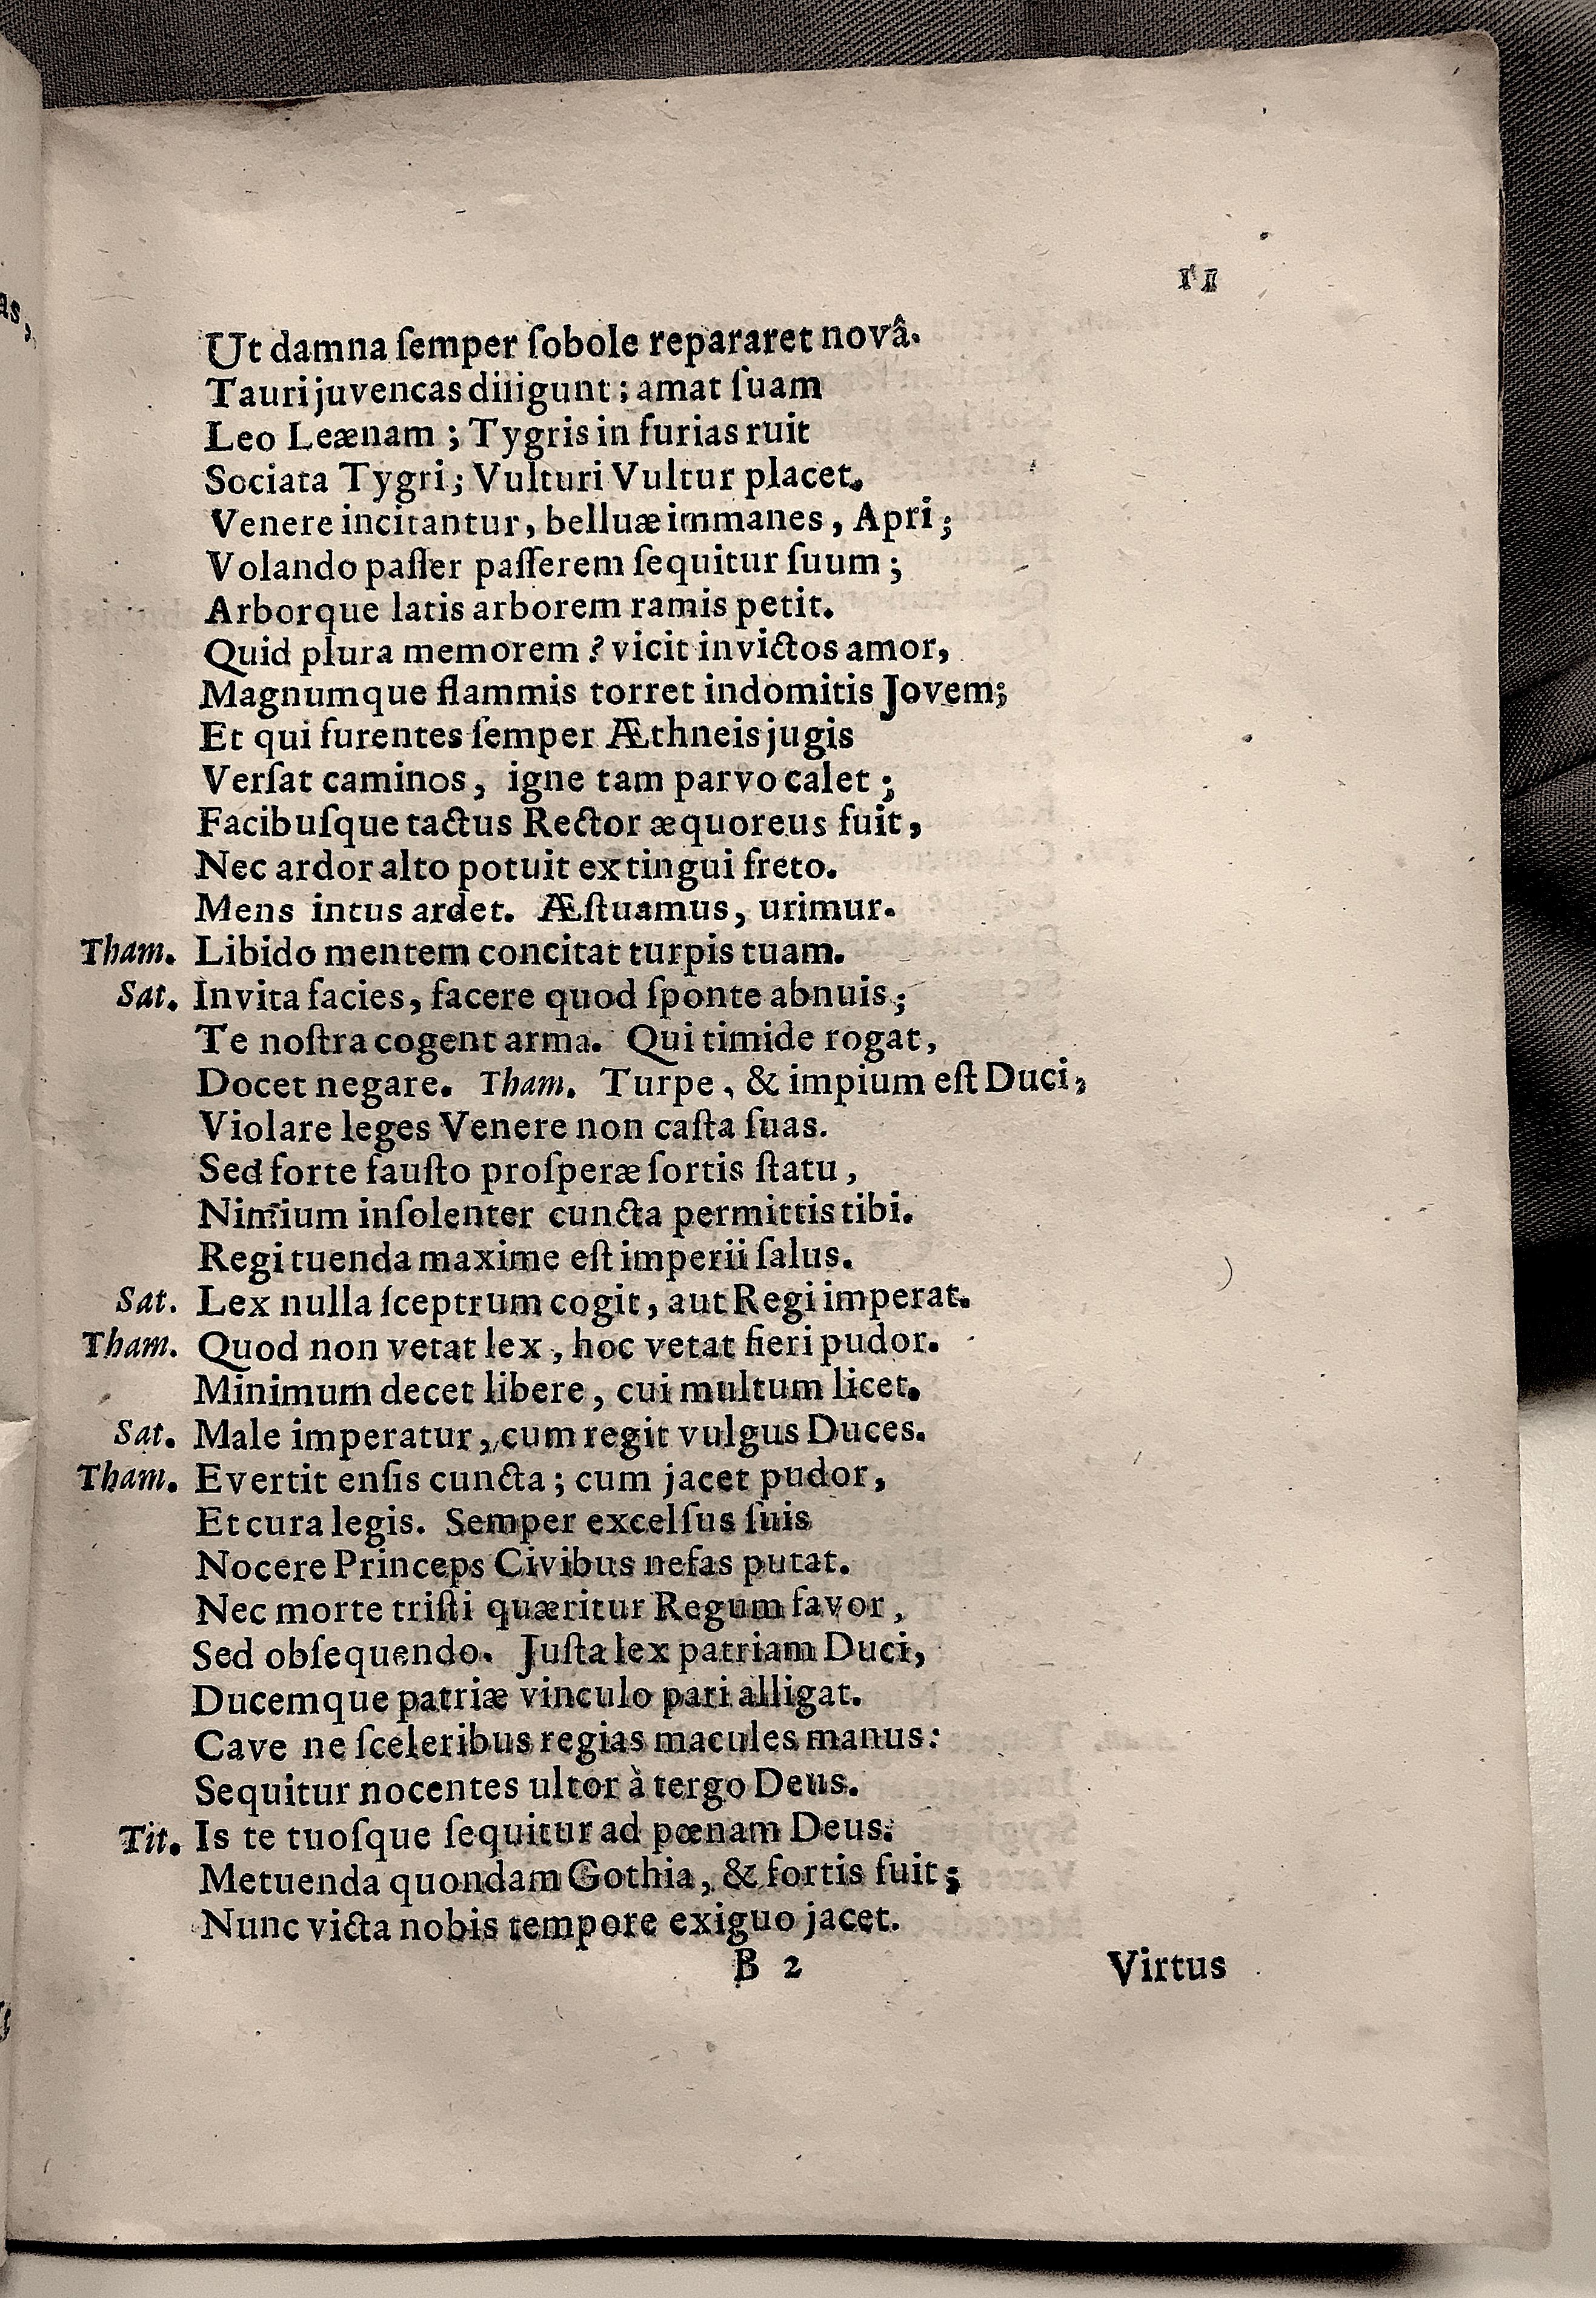 as,
11
Ut damna ſemper ſobole repararet novâ.
Tauri juvencas diligunt; amat ſuam
Leo Leænam; Tygris in furias ruit
Sociata Tygri; Vulturi Vultur placet.
Venere incitantur, belluæ immanes, Apri;
Volando paſſer paſſerem ſequitur ſuum;
Arborque latis arborem ramis petit.
Quid plura memorem? vicit invictos amor,
Magnumque flammis torret indomitis Jovem;
Et qui furentes ſemper Æthneis jugis
Verſat caminos, igne tam parvo calet;
Facibuſque tactus Rector æquoreus fuit,
Nec ardor alto potuit extingui freto.
Mens intus ardet. Æſtuamus, urimur.
Tham. Libido mentem concitat turpis tuam.
Sat. Invita facies, facere quod ſponte abnuis;
Te noſtra cogent arma. Qui timide rogat,
Docet negare. Tham. Turpe, & impium eſt Duci,
Violare leges Venere non caſta ſuas.
Sed forte fauſto proſperæ ſortis ſtatu,
Nimium inſolenter cuncta permittis tibi.
Regi tuenda maxime eſt imperii ſalus.
Sat. Lex nulla ſceptrum cogit, aut Regi imperat.
Tham. Quod non vetat lex, hoc vetat fieri pudor.
Minimum decet libere, cui multum licet.
Sat. Male imperatur, cum regit vulgus Duces.
Tham. Evertit enſis cuncta; cum jacet pudor,
Et cura legis. Semper excelſus ſuis
Nocere Princeps Civibus nefas putat.
Nec morte triſti quæritur Regum favor,
Sed obſequendo. Juſta lex patriam Duci,
Ducemque patriæ vinculo pari alligat.
Cave ne ſceleribus regias macules manus:
Sequitur nocentes ultor à tergo Deus.
Tit. Is te tuoſque ſequitur ad pœnam Deus.
Metuenda quondam Gothia, & fortis fuit;
Nunc victa nobis tempore exiguo jacet.
B 2 Virtus